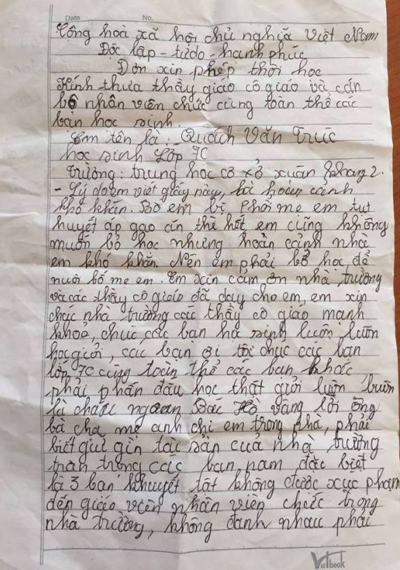 Date No.
Cộng hoà xã hội chủ nghĩa Việt Nam
Độc lập - tự do - hạnh phúc
Đơn xin phép thôi học
Kính thưa thầy giáo cô giáo và cán
bộ nhân viên chức cùng toàn thể các
bạn học sinh
Em tên là: Quách Văn Trúc
học sinh lớp 7C
Trường: trung học cơ xở xuân phang 2.
- Lí do em viết giấy này, là hoàn cảnh
khó khăn. Bố em bị phổi mẹ em tụt
huyết áp gạo ăn thì hết em cũng không
muốn bỏ học nhưng hoàn cảnh nhà
em khó khăn. Nên em phải bỏ học để
nuôi bố mẹ em. Em xin cảm ơn nhà trường
và các thầy cô giáo đã dạy cho em, em xin
chúc nhà trường các thầy cô giáo mạnh
khoẻ, chúc các bạn học sinh luôn luôn
học giỏi, các bạn ơi tôi chúc các bạn
lớp 7C cùng toàn thể các bạn khác
phải phấn đấu học thật giỏi luôn luôn
là cháu ngoan Bác Hồ vâng lời ông
bà cha mẹ anh chị em trong nhà, phải
biết giữ gìn tài sản của nhà trường
trân trọng các bạn nam đặc biệt
là 3 bạn khuyết tật không được xúc phạm
đến giáo viên nhân viên chức trong
nhà trường, không đánh nhau phải
Vietbook